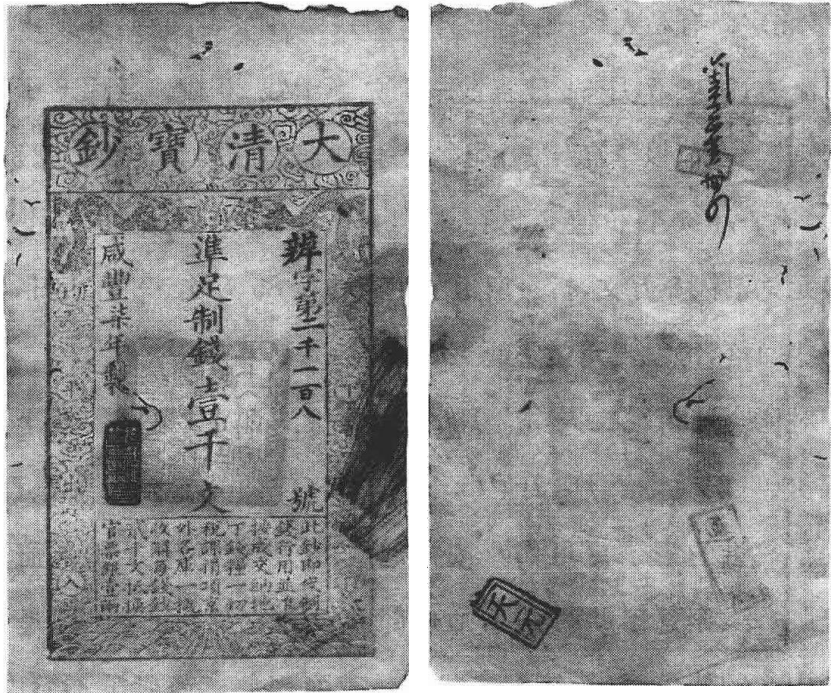 大清寶鈔
辨字第二千一百八號
準足制錢壹千文
咸豐柒年製
此鈔即代制
錢行用並准
按成交納地
丁錢糧一切
稅課捐項京
外各庫一概
收解每錢鈔
貳千文抵換
官票銀壹兩